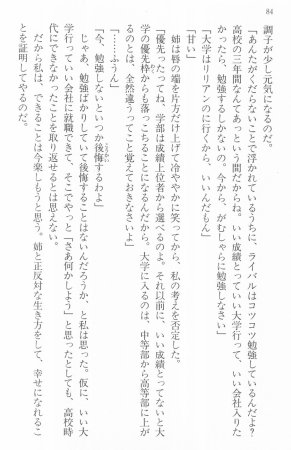 84
調子が少し元気になるのだ。
「あんたがくだらないことで浮かれているうちに、ライバルはコツコツ勉強しているんだよ？
高校の三年間なんてあっという間だからね。いい成績とっていい大学行って、いい会社入りた
かったら、リリアンするしかないの。今から、がむしゃらに勉強しなさい」
「大学はリリアンのに行くから、いいんだもん」
「甘い」
姉は唇の端を片方だけ上げて冷ややかに笑ってから、私の考えを否定した。
「優先ったってね、学部は成績上位者から選べるのよ。それ以前に、いい成績とってないと大
学の優先枠からも落っこちることになるんだから。大学に入るのは、中等部から高等部に上が
るのとは、全然違うってこと覚えておきなさいよ」
「……ふうん」
「今、勉強しないといつか後悔するわよ」
じゃあ、勉強ばかりしていて後悔することはないんだろうか、と私は思った。仮に、いい大
学行っていい会社に就職できて、そこでやっと「さあ何かしよう」と思ったとしても、高校時
代にできなかったことを取り返せるとは思えない。
だから私は、できることは今楽しもうと思う。姉と正反対な生き方をして、幸せになれるこ
とを証明してやるのだ。